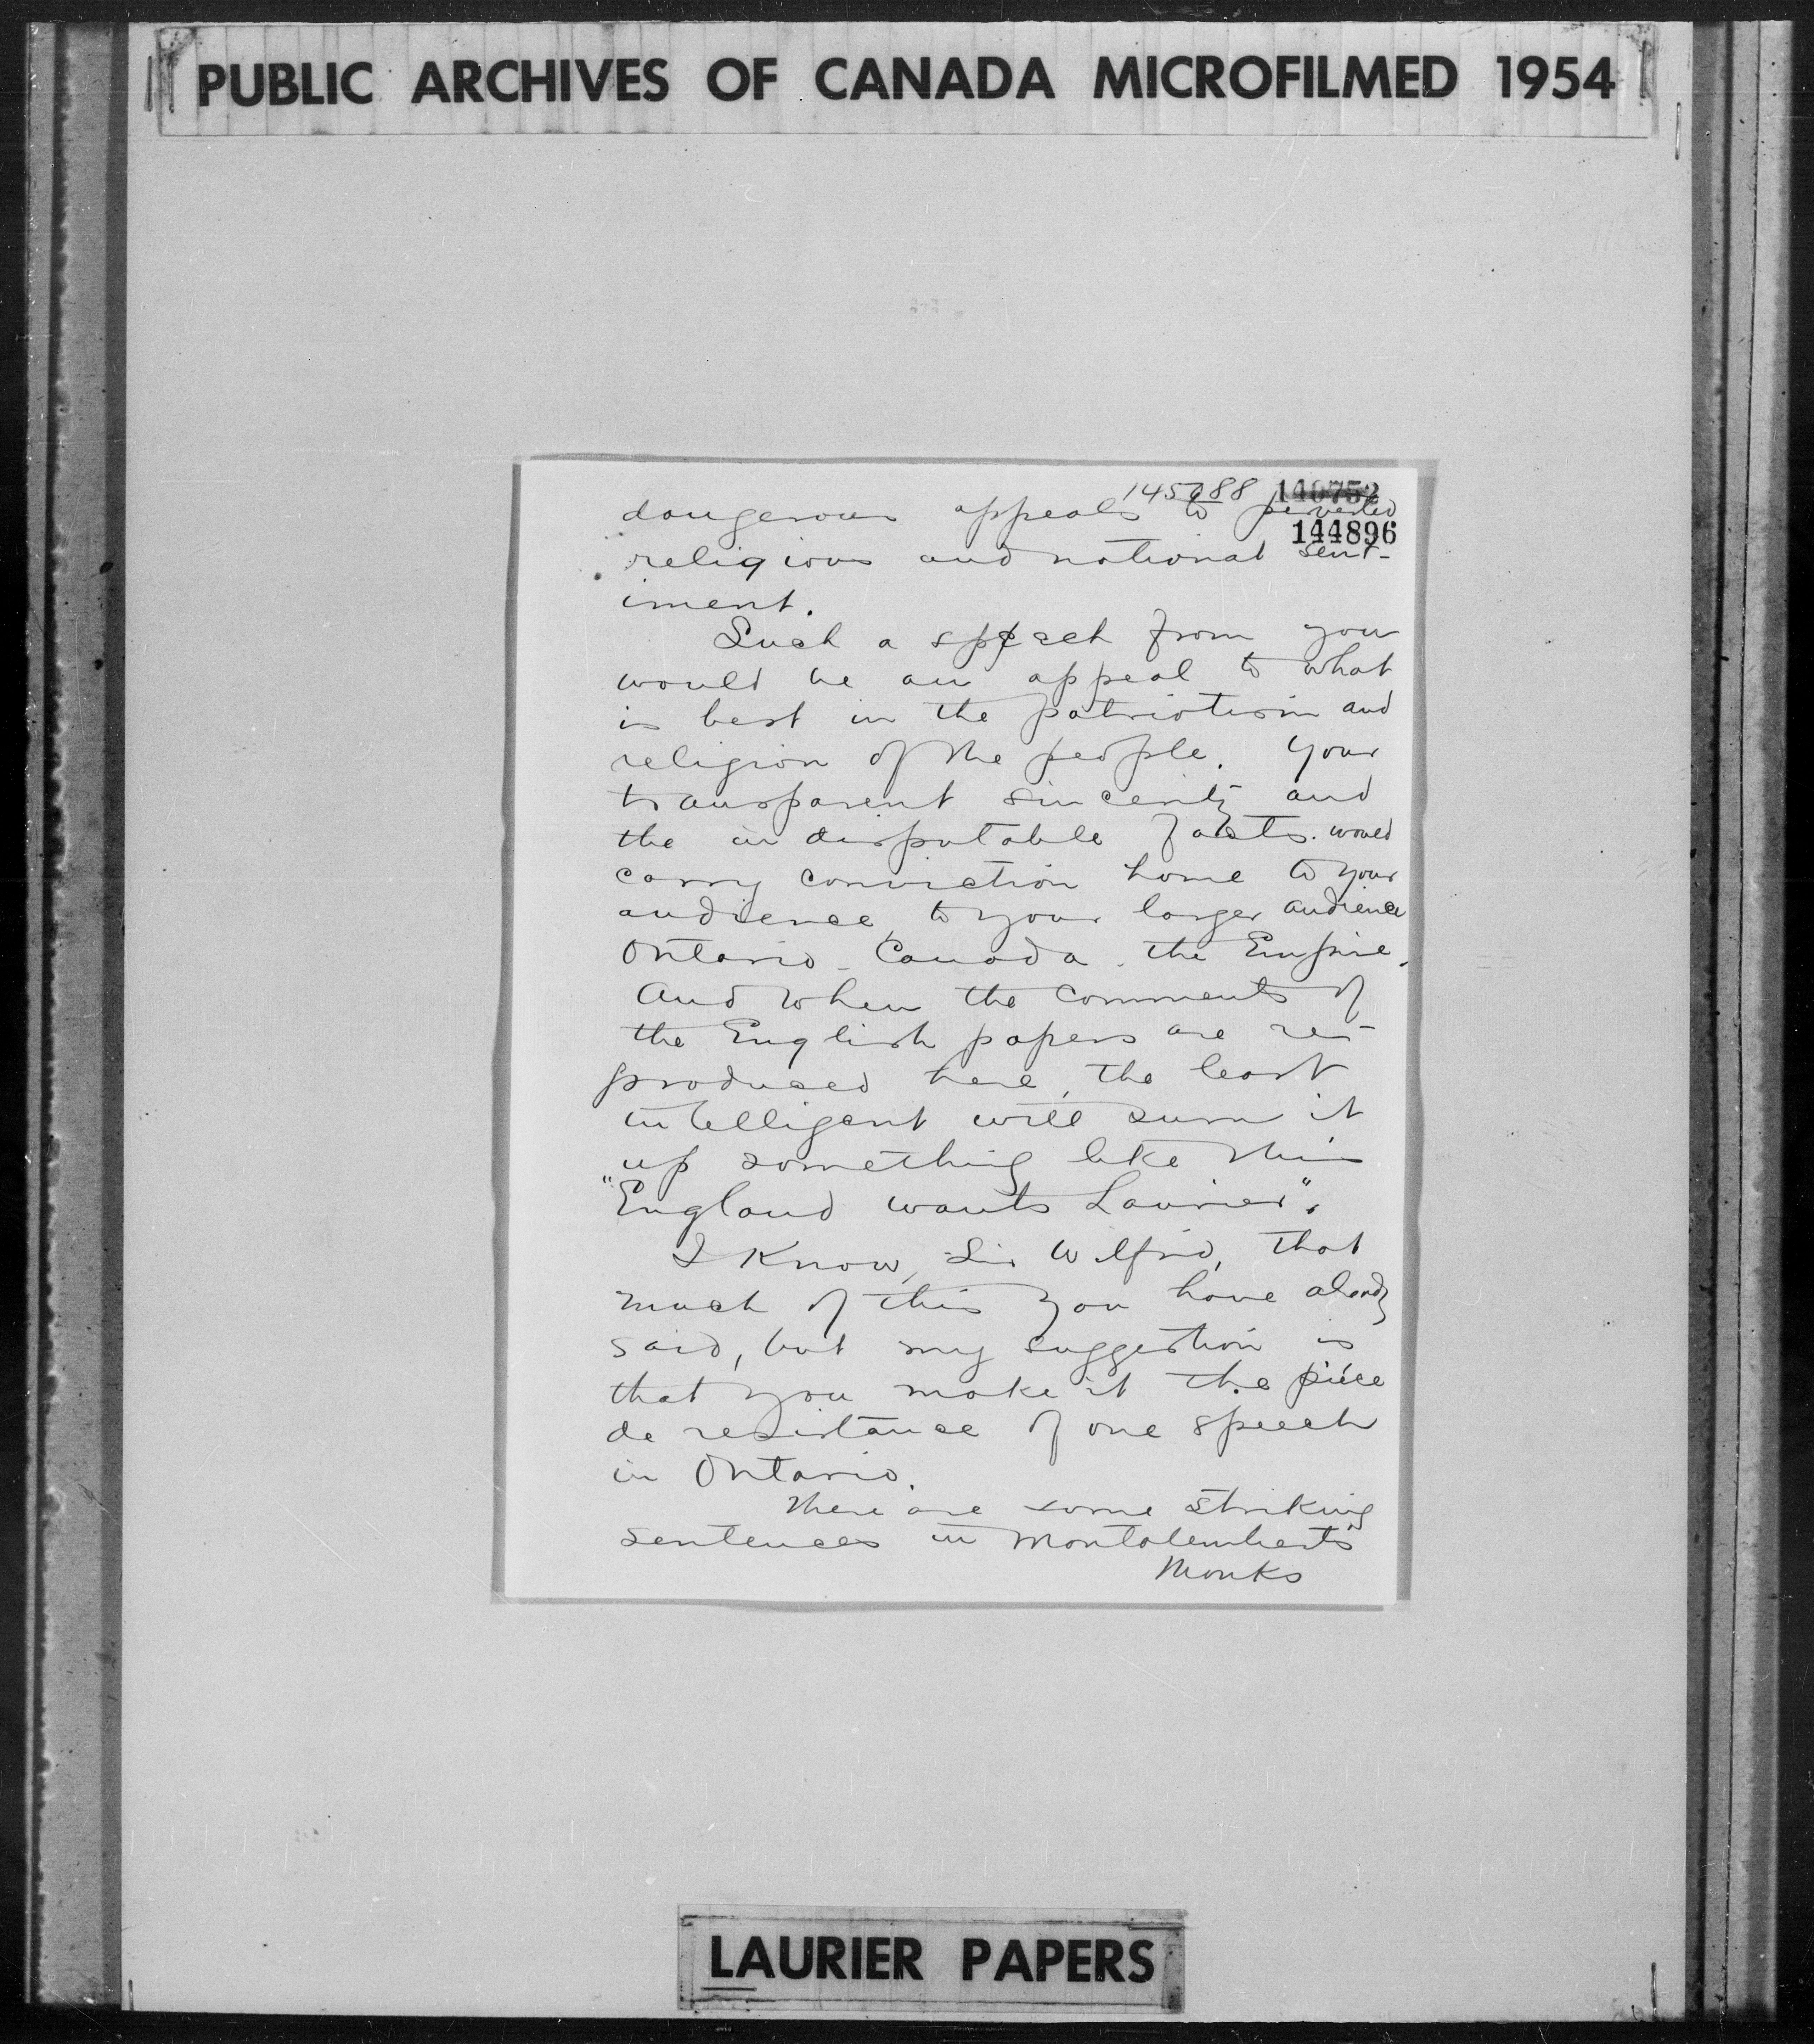 PUBLIC ARCHIVES OF CANADA MICROFILMED 1954
145088 140752
dangerous appeals to perverted
144896
religious and national sent-
iment.
Such a speech from you
would be an appeal to what
is best in the patriotism and
religion of the people. Your
transparent sincerity and
the indisputable facts would
carry conviction home to your
audience, to your larger audience
Ontario - Canada - the Empire.
And when the comments of
the English papers are re-
produced here, the least
intelligent will sum it
up something like this
"England wants Laurier".
I know, Sir Wilfrid, that
much of this you have already
said, but my suggestion is
that you make it the pièce
de resistance of one speech
in Ontario.
There are some striking
sentences in Montalembert's
Monks
LAURIER PAPERS